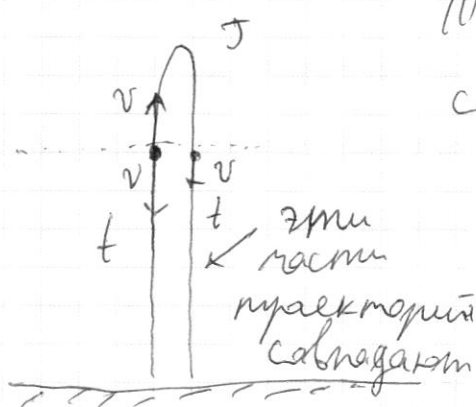 τ
v
с
v v
t t
эти
части
траекторий
совпадают